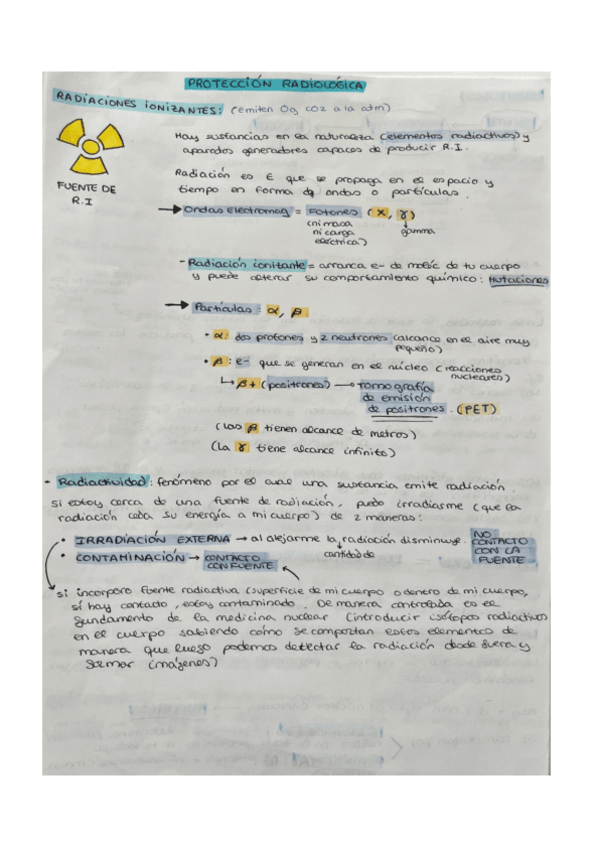 PROTECCIÓN RADIOLÓGICA
RADIACIONES IONIZANTES: (emiten O3, CO2 a la atm)
Hay sustancias en la naturaleza (elementos radiactivos) y
aparatos generadores capaces de producir R.I.
FUENTE DE
R.I
Radiación es E que se propaga en el espacio y
tiempo en forma de ondas o partículas.
→ Ondas Electromag = Fotones (X, γ)
(ni masa
ni carga
eléctrica)
gamma
- Radiación ionitante = arranca e- de moléc de tu cuerpo
y puede alterar su comportamiento químico: Mutaciones
→ Partículas: α, β
• α: dos protones y 2 neutrones (alcance en el aire muy
pequeño)
• β: e- que se generan en el núcleo (reacciones
nucleares)
↳ β+ (positrones) → tomografía
de emisión
de positrones. (PET)
(las β tienen alcance de metros)
(La γ tiene alcance infinito)
- Radiactividad: fenómeno por el cual una sustancia emite radiación.
Si estoy cerca de una fuente de radiación, puedo irradiarme (que la
radiación ceda su energía a mi cuerpo) de 2 maneras:
• IRRADIACIÓN EXTERNA → al alejarme la radiación disminuye.
cantidad de
NO
CONTACTO
CON LA
FUENTE
• CONTAMINACIÓN → CONTACTO
CON FUENTE
si incorporo fuente radiactiva (superficie de mi cuerpo o denero de mi cuerpo,
si hay contacto, estoy contaminado. De manera controlada es el
fundamento de la medicina nuclear (introducir isótopos radiactivos
en el cuerpo sabiendo cómo se comportan estos elementos de
manera que luego podemos detectar la radiación desde fuera y
formar imágenes)